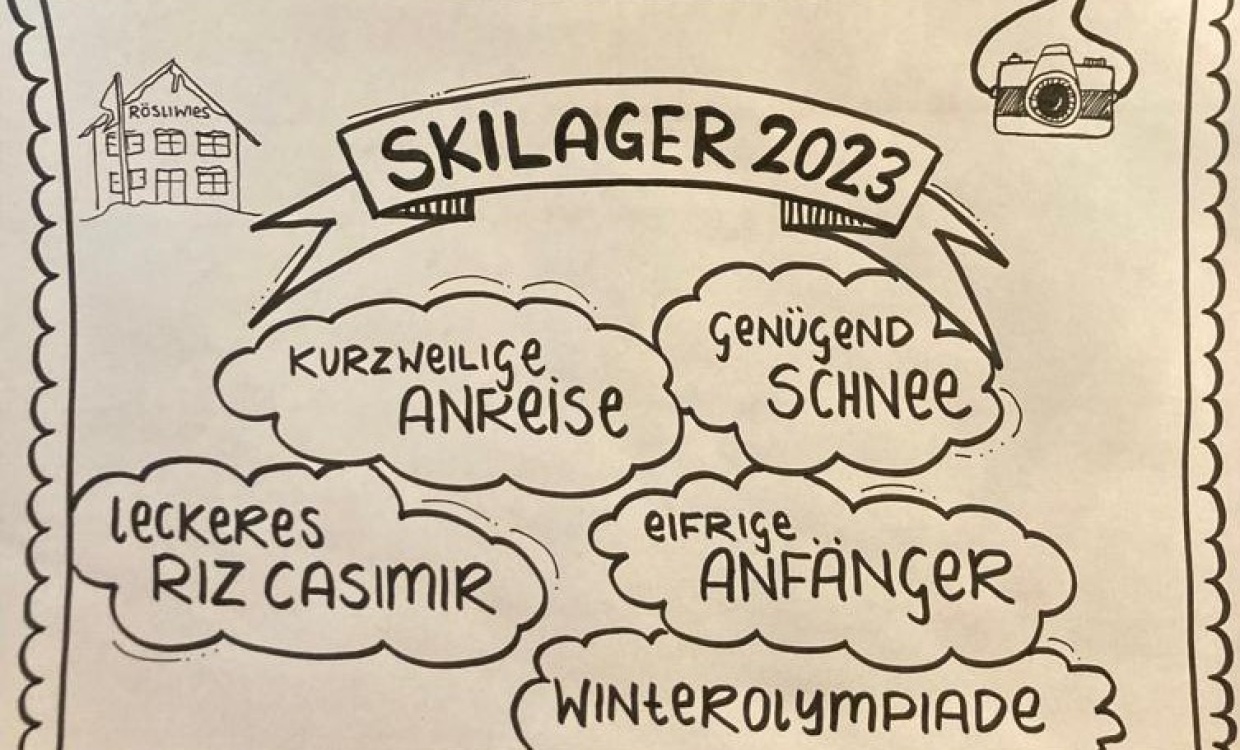 RÖSLIWIES
SKILAGER 2023
KURZWEILIGE
ANREISE
GENÜGEND
SCHNEE
LECKERES
RIZ CASIMIR
EIFRIGE
ANFÄNGER
WINTEROLYMPIADE